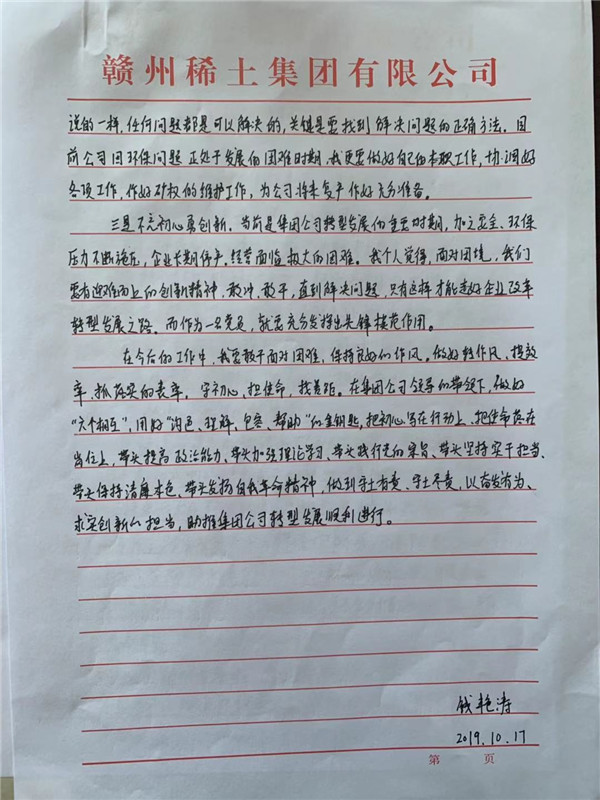 赣州稀土集团有限公司
说的一样,任何问题都是可以解决的,关键是要找到解决问题的正确方法。目
前公司因环保问题正处于发展的困难时期,我更要做好自己的本职工作,协调好
各项工作,作好矿权的维护工作,为公司将来复产作好充分准备。
三是不忘初心勇创新。当前是集团公司转型发展的重要时期,加之安全、环保
压力不断施压,企业长期停产,经营面临极大的困难。我个人觉得,面对困境,我们
要有迎难而上的创新精神,敢冲,敢干,直到解决问题,只有这样才能走好企业改革
转型发展之路。而作为一名党员,就要充分发挥出先锋模范作用。
在今后的工作中,我要敢于面对困难,保持良好的作风。做好转作风、提效
率、抓落实的表率。守初心,担使命,找差距。在集团公司领导的带领下,做好
“六个相互”,用好“沟通、理解、包容、帮助”的金钥匙,把初心写在行动上,把使命落在
岗位上,带头提高政治能力、带头加强理论学习、带头践行党的宗旨、带头坚持实干担当、
带头保持清廉本色、带头发扬自我革命精神,做到守土有责、守土尽责,以奋发有为、
求实创新的担当,助推集团公司转型发展顺利进行。
钱艳涛
2019.10.17
第 页